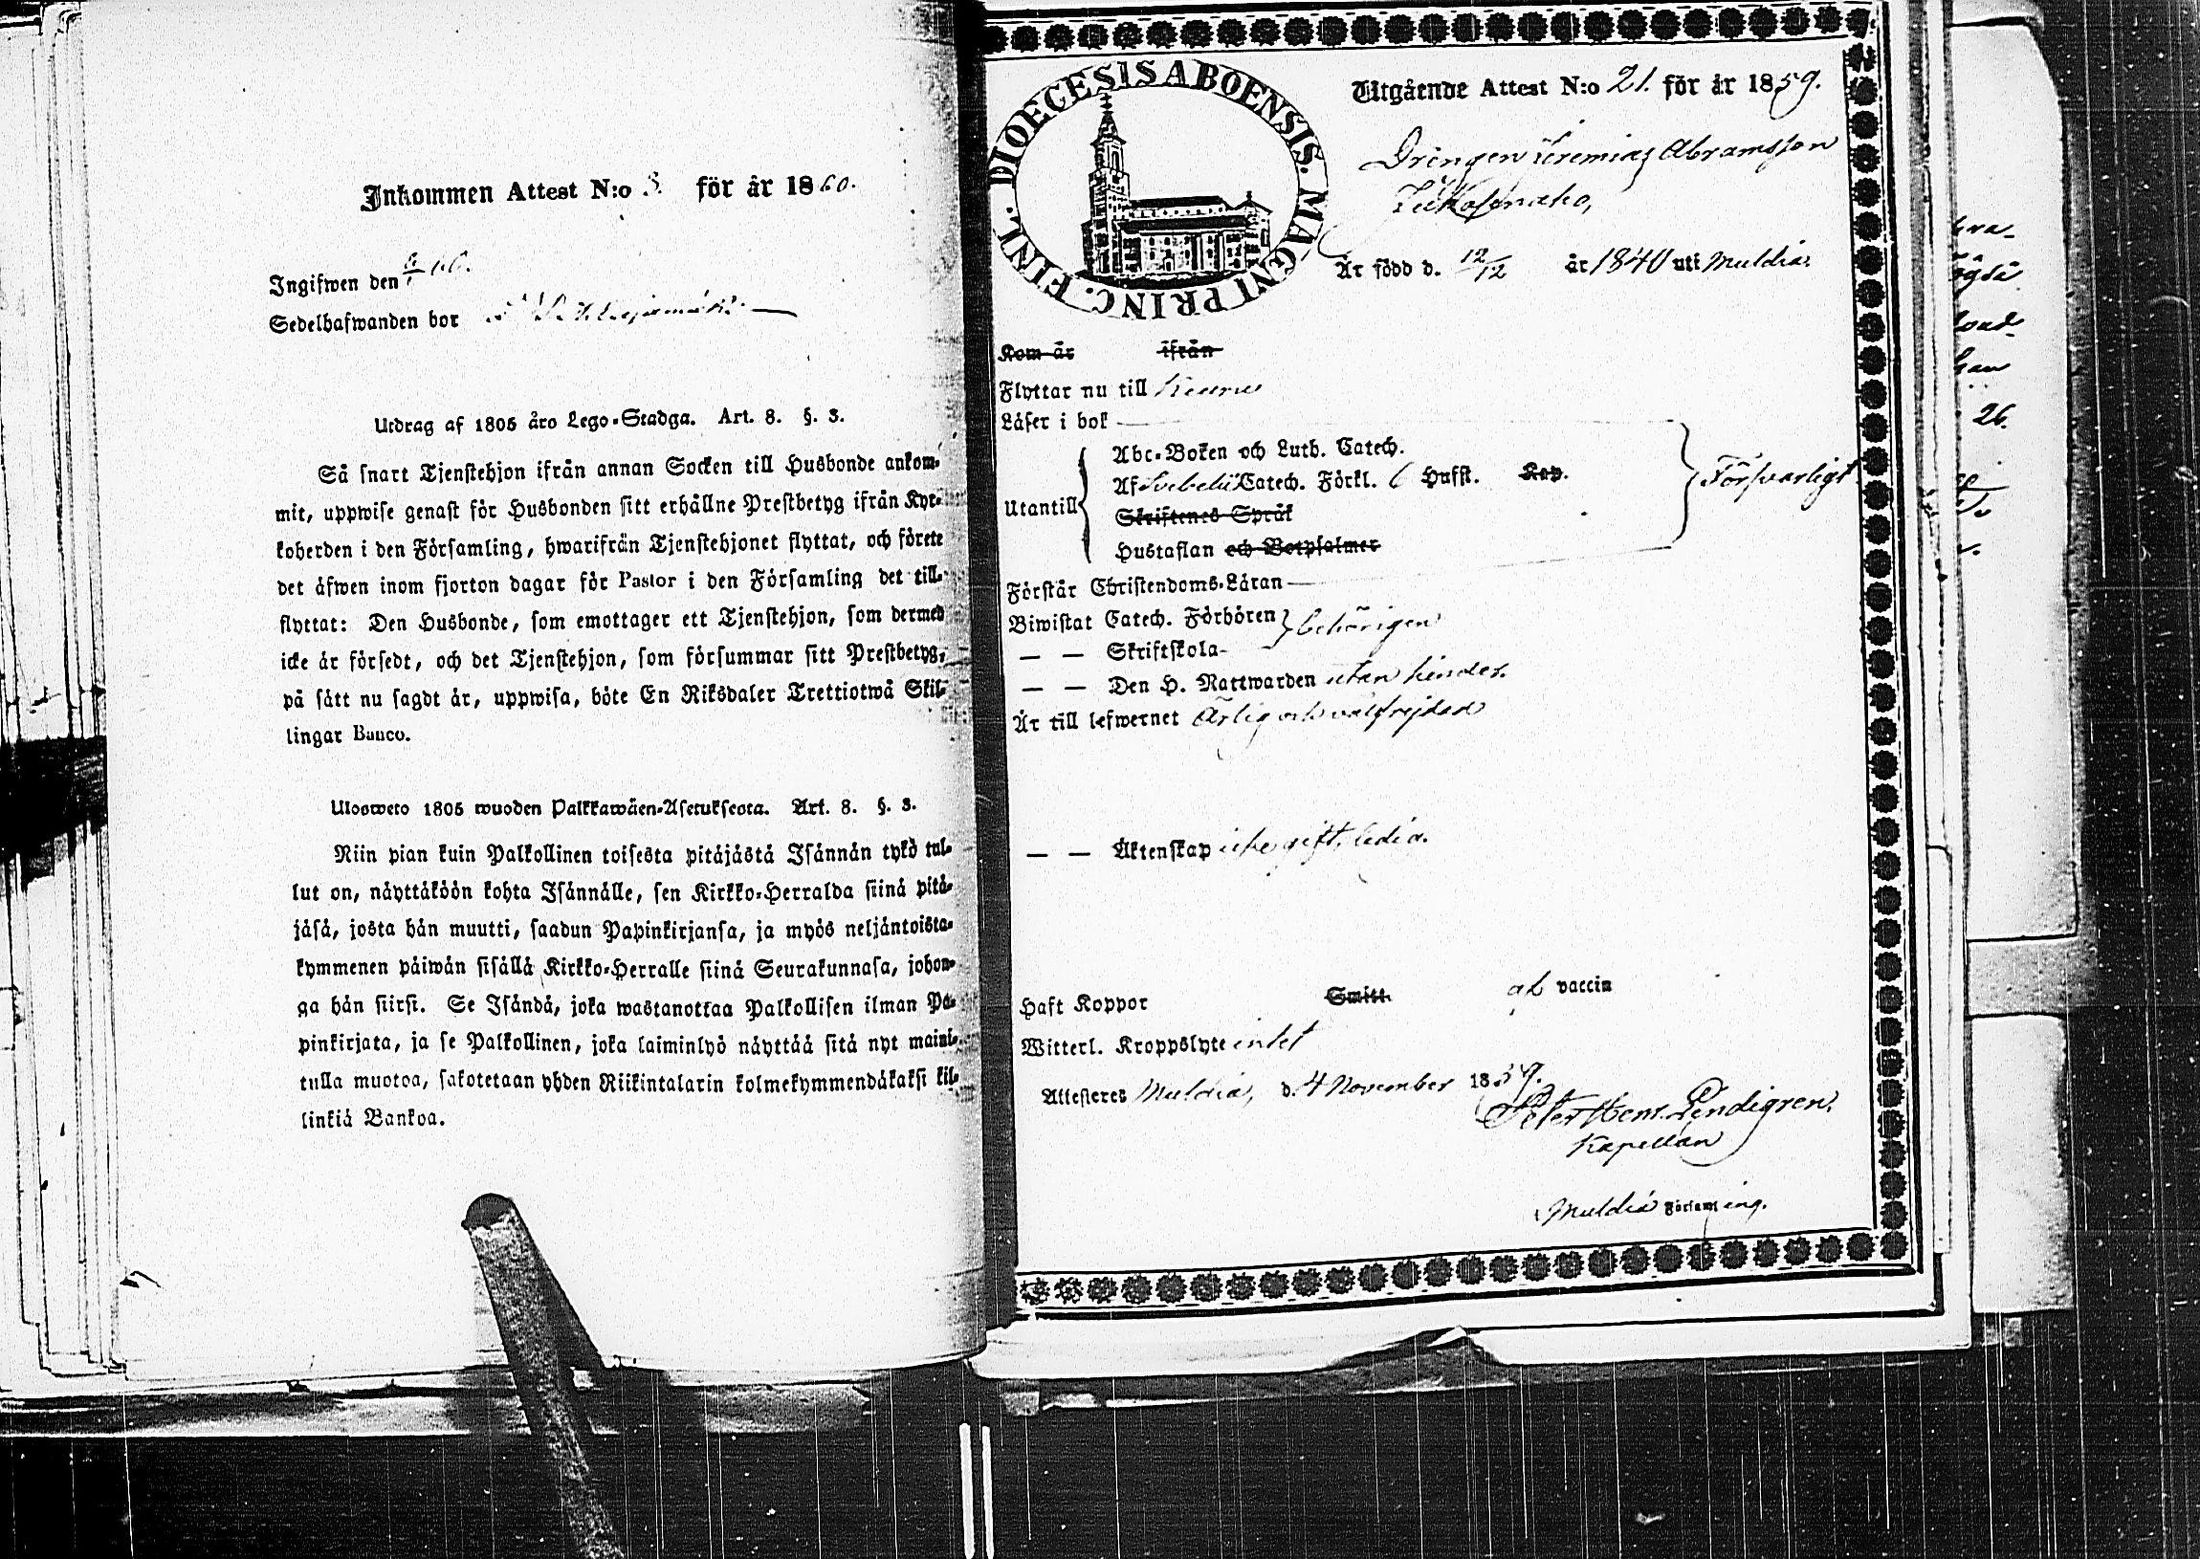 Inkommen Attest N:o 3. för år 1860.
Ingifwen den
Sedelhafwanden bor
Utdrag af 1805 års Lego-Stadga. Art. 8. §. 3.
Så snart Tjenstehjon ifrån annan Socken till Husbonde ankom-
mit, uppwise genast för Husbonden sitt erhållne Prestbetyg ifrån Kyr-
koherden i den Församling, hwarifrån Tjenstehjonet flyttat, och förete
det äfwen inom fjorton dagar för Pastor i den Församling det till-
flyttat: Den Husbonde, som emottager ett Tjenstehjon, som dermed
icke är försedt, och det Tjenstehjon, som försummar sitt Prestbetyg,
på sätt nu sagdt är, uppwisa, böte En Riksdaler Trettiotwå Skil-
lingar Banco.
Ulosweto 1805 wuoden Palkkawäen-Asetuksesta. Art. 8. §. 3.
Niin pian kuin Palkollinen toisesta pitäjästä Isännän tykö tul-
lut on, näyttäköön kohta Isännälle, sen Kirkko-Herralda siinä pitä-
jäsä, josta hän muutti, saadun Papinkirjansa, ja myös neljäntoista-
kymmenen päiwän sisällä Kirkko-Herralle siinä Seurakunnasa, johon-
ga hän siirsi. Se Isändä, joka wastanottaa Palkollisen ilman Pa-
pinkirjata, ja se Palkollinen, joka laiminlyö näyttää sitä nyt maini-
tulla muotoa, sakotetaan yhden Riikintalarin kolmekymmendäkaksi kil-
linkiä Bankoa.
DIOECESIS ABOENSIS. MAGNI PRINC. FINL.
Utgående Attest N:o 21. för år 1859.
Drängen Jeremias Abramsson
Är född d. 12/12 år 1840 uti Muldia.
Kom år ifrån
Flyttar nu till Keuru
Läser i bok
Utantill
Abc-Boken och Luth. Catech.
Af Svebelii Catech. Förkl. 6 Hufst. Kap.
Skriftenes Språk
Hustaflan och Botpsalmer
Försvarligt
Förstår Christendoms-Läran
Biwistat Catech. Förhören
— — Skriftskola
behörigen
— — Den H. Nattwarden utan hinder.
Är till lefwernet Ärlig och välfrejdad
— — Äktenskap icke gift, ledig.
Haft Koppor Smitt. af vaccin
Witterl. Kroppslyte intet
Attesteres Muldia, d. 4 November 1859.
Peter Henr. Lendigren.
Kapellan
Muldia Församling.
26.